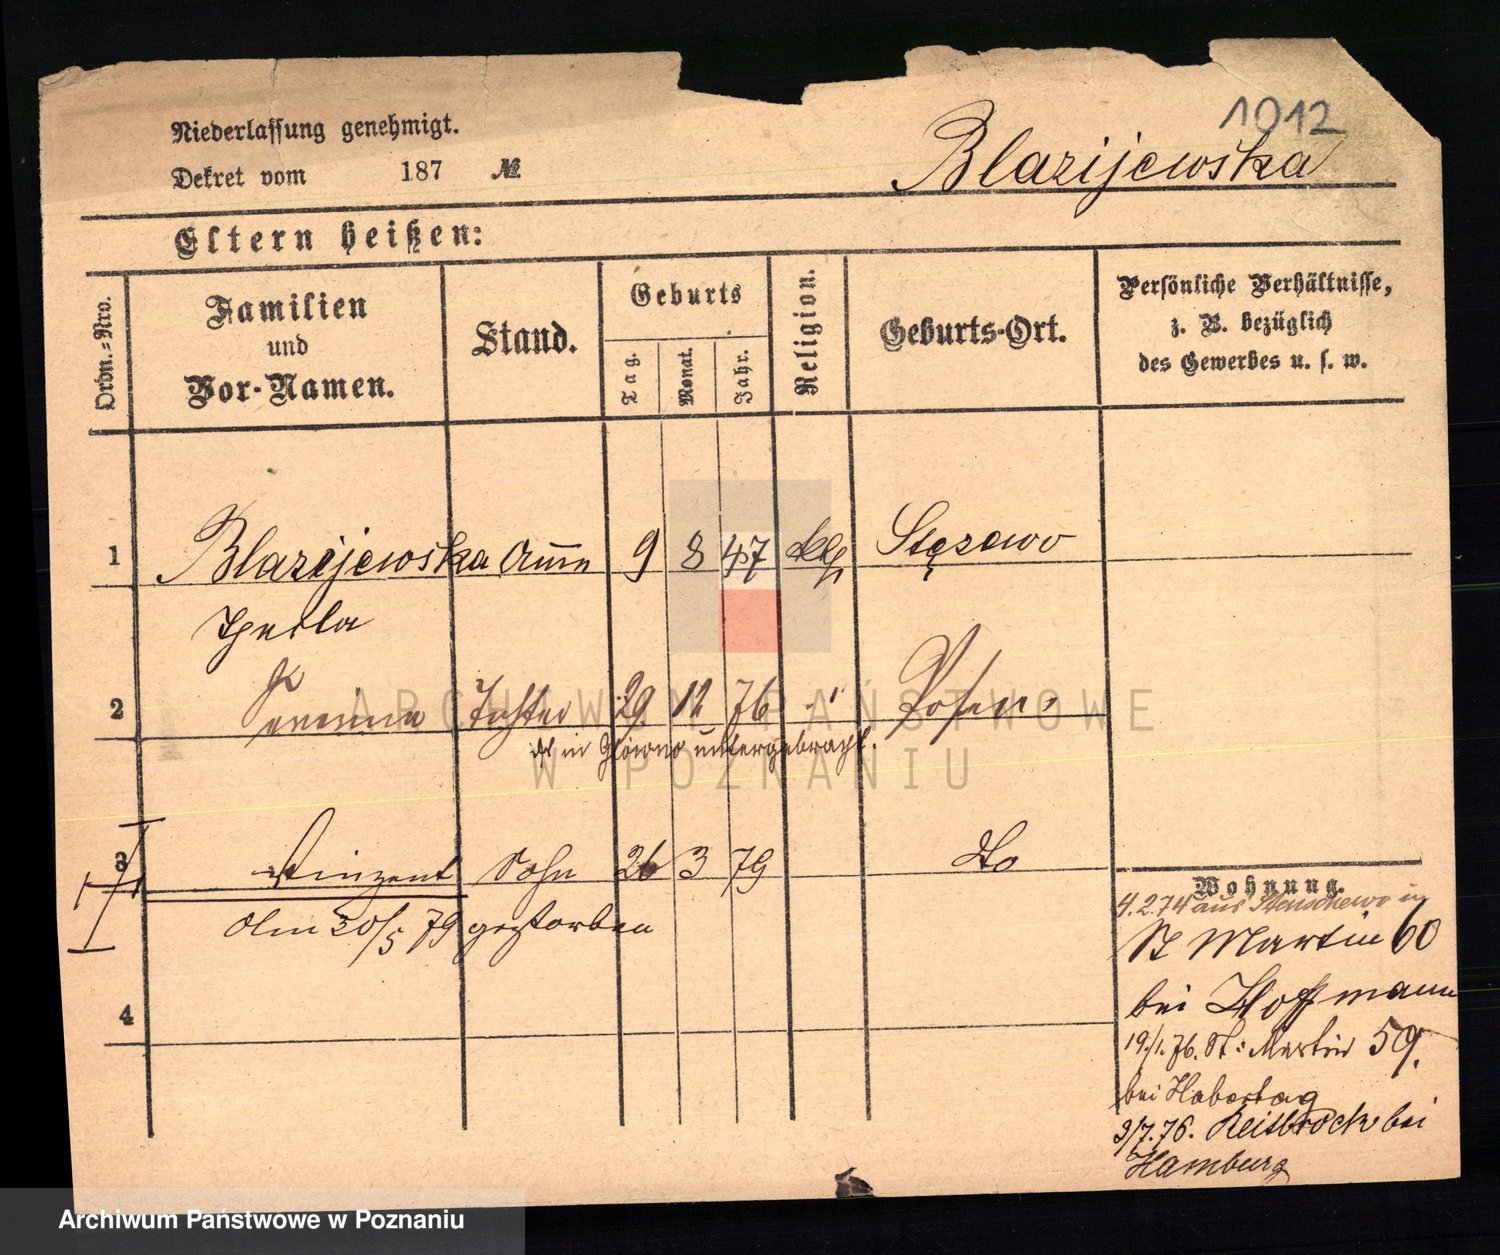 1912
Niederlassung genehmigt.
Dekret vom 187 №
Blazijewska
Eltern heißen:
Ordn.-Nro.
Familien
und
Vor-Namen.
Stand.
Geburts
Tag.
Monat.
Jahr.
Religion.
Geburts-Ort.
Persönliche Verhältnisse,
z. B. bezüglich
des Gewerbes u. s. w.
1 Blazejewska 9 8 47 Stęszewo
2 Tochter 29 12 76 Posen
in untergebracht.
3 Vinzent Sohn 26 3 79 do
Am 30/5 79 gestorben
4
Wohnung.
4.2.74 aus Stenschewo in
St Martin 60
bei Hoffmann
19./1. 76. St: Martin 59.
bei Habertag
3/7. 76. bei
Hamburg
ARCHIWUM PAŃSTWOWE
W POZNANIU
Archiwum Państwowe w Poznaniu